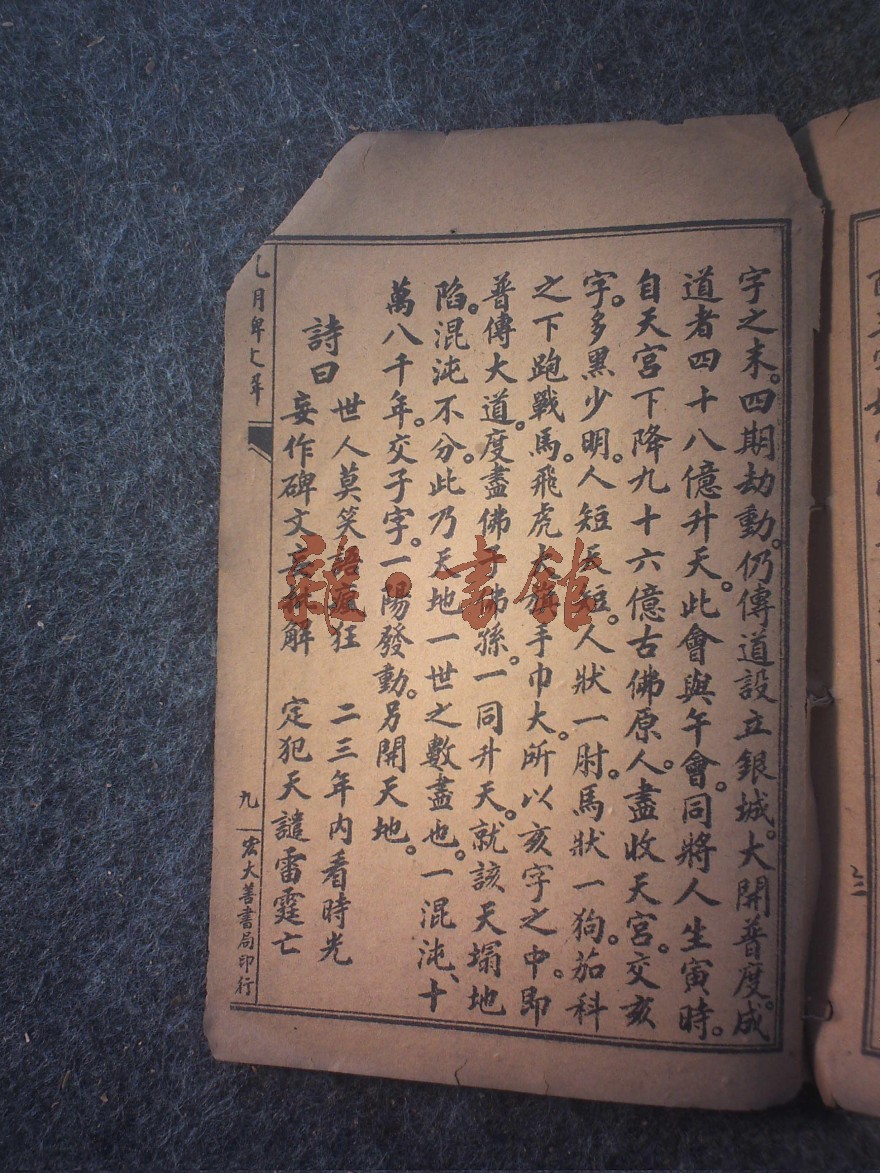 字之末。四期劫動。仍傳道設立銀城。大開普度。成
道者四十八億升天。此會與午會。同將人生寅時。
自天宮下降九十六億古佛原人。盡收天宮。交亥
字。多黑少明。人短天短。人狀一肘。馬狀一狗。茄科
之下跑戰馬。飛虎大旗手巾大。所以亥字之中。即
普傳大道。度盡佛子佛孫。一同升天。就該天塌地
陷。混沌不分。此乃天地一世之數盡也。一混沌、十
萬八千年。交子字。一陽發動。另開天地。
詩曰
世人莫笑語瘋狂　二三年內看時光
妄作碑文妄批解　定犯天譴雷霆亡
九
宏大善書局印行
雜·書館